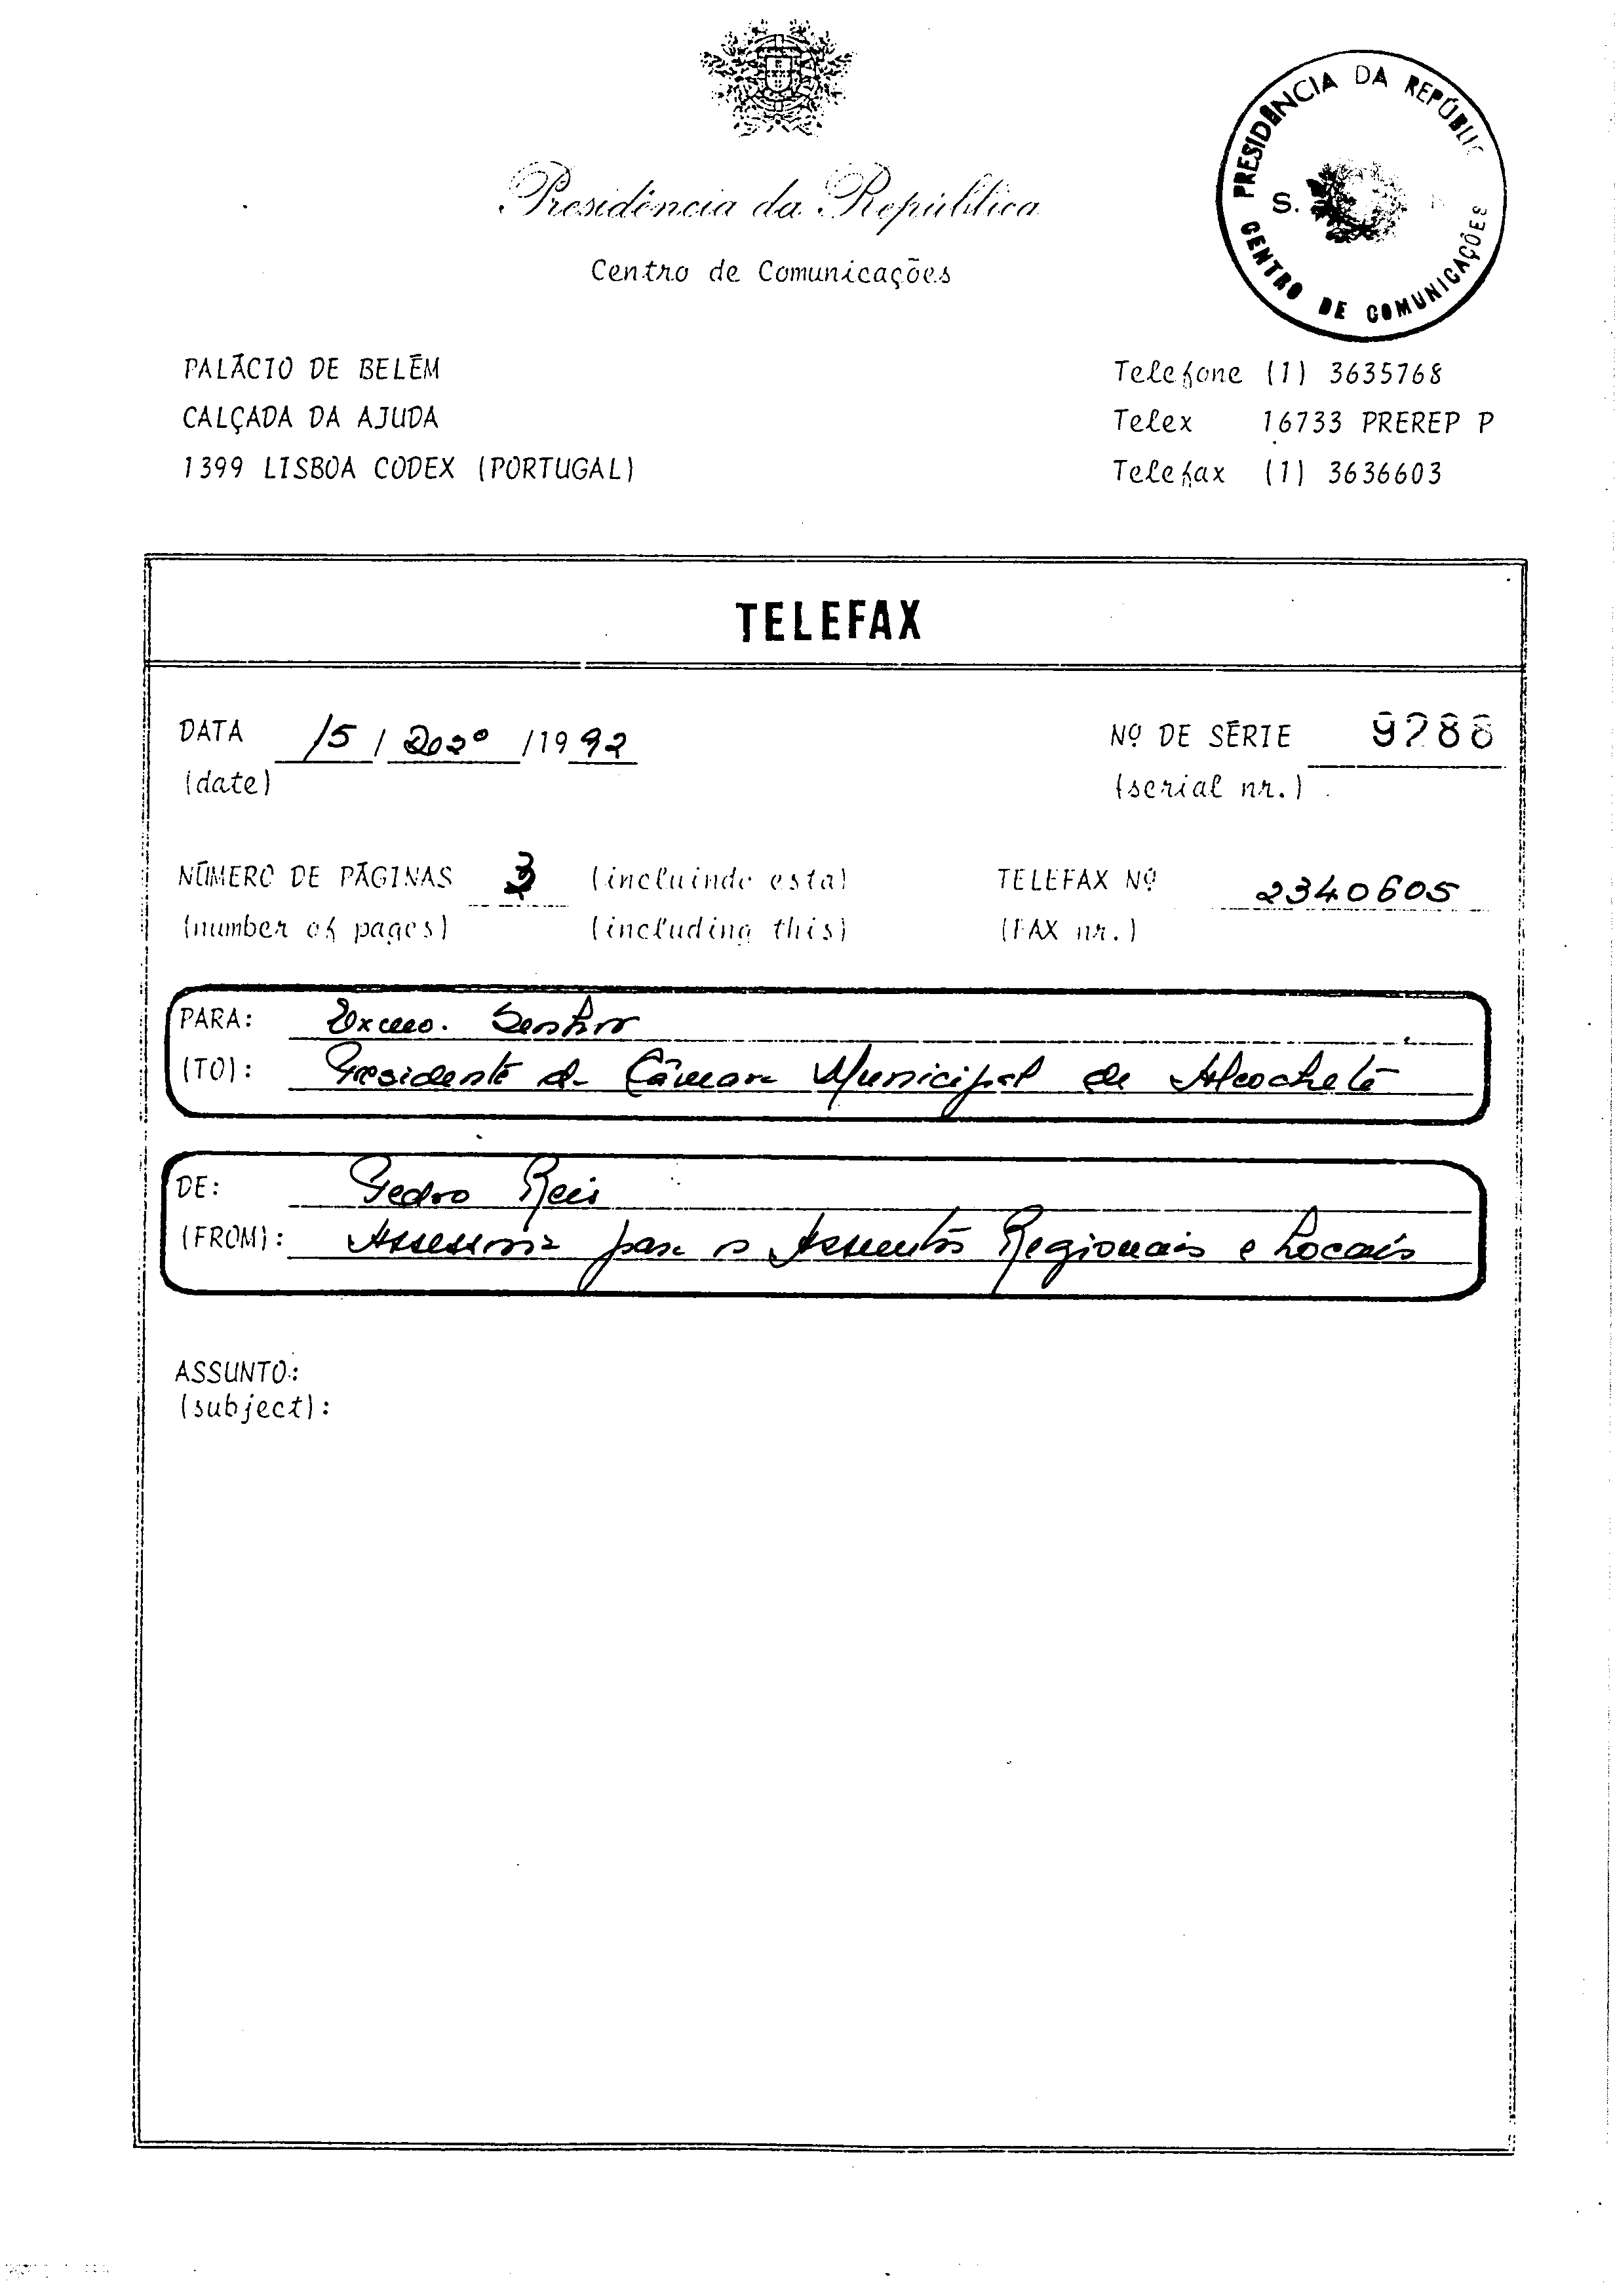 Presidência da República
Centro de Comunicações
PRESIDÊNCIA DA REPÚBLIC
S. R
CENTRO DE COMUNICAÇÕES
PALÁCIO DE BELÉM
CALÇADA DA AJUDA
1399 LISBOA CODEX (PORTUGAL)
Telefone (1) 3635768
Telex 16733 PREREP P
Telefax (1) 3636603
TELEFAX
DATA 15 / /1992
(date)
Nº DE SÉRIE 9288
(serial nr.)
NÚMERO DE PÁGINAS 3 (incluindo esta)
(number of pages) (including this)
TELEFAX Nº 2340605
(FAX nr.)
PARA: Exmo. Senhor
(TO): Presidente da Câmara Municipal de Alcochete
DE: Pedro Reis
(FROM): Assessoria para os Assuntos Regionais e Locais
ASSUNTO:
(subject):